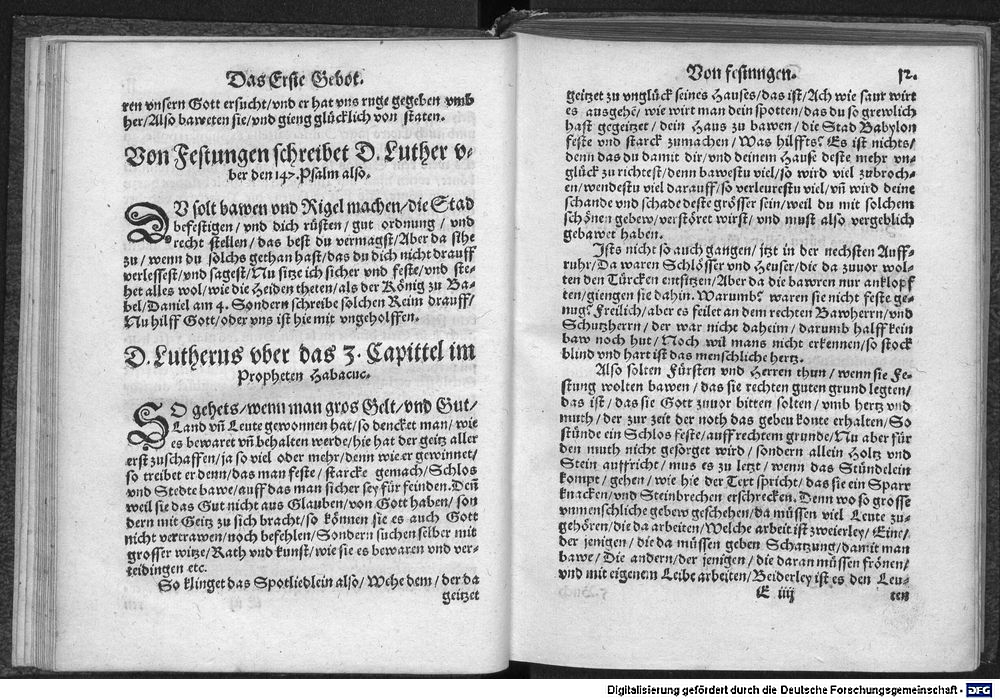 Das Erste Gebot.
ren vnsern Gott ersucht/vnd er hat vns ruge gegeben vmb
her/Also baweten sie/vnd gieng glücklich von staten.
Von Festungen schreibet D. Luther v-
ber den 147. Psalm also.
DV solt bawen vnd Rigel machen/die Stad
befestigen/ vnd dich rüsten/ gut ordnung / vnd
recht stellen/ das best du vermagst/Aber da sihe
zu / wenn du solchs gethan hast/das du dich nicht drauff
verlessest/vnd sagest/Nu sitze ich sicher vnd feste/vnd ste-
het alles wol/wie die Heiden theten/als der König zu Ba-
bel/Daniel am 4. Sondern schreibe solchen Reim drauff/
Nu hilff Gott/oder vns ist hie mit vngeholffen.
D. Lutherus vber das 3. Capittel im
Propheten Habacuc.
SO gehets/wenn man gros Gelt/vnd Gut/
Land vñ Leute gewonnen hat/so dencket man/ wie
es bewaret vñ behalten werde/hie hat der geitz aller
erst zuschaffen/ja so viel oder mehr/denn wie er gewinnet/
so treibet er denn/das man feste/ starcke gemach/Schlos
vnd Stedte bawe/auff das man sicher sey für feinden. Deñ
weil sie das Gut nicht aus Glauben/von Gott haben/ son
dern mit Geitz zu sich bracht/so können sie es auch Gott
nicht vertrawen/noch befehlen/Sondern suchen selber mit
grosser witze/Rath vnd kunst/wie sie es bewaren vnd ver-
teidingen etc.
So klinget das Spotliedlein also/ Wehe dem/ der da
geitzet
Von festungen.
52.
geitzet zu vnglück seines Hauses/das ist/Ach wie saur wirt
es ausgehē/ wie wirt man dein spotten/das du so grewlich
hast gegeitzet/ dein Haus zu bawen/ die Stad Babylon
feste vnd starck zumachen/ Was hilffts? Es ist nichts/
denn das du damit dir/vnd deinem Hause deste mehr vn-
glück zu richtest/denn bawestu viel/so wird viel zubroch-
en/wendestu viel darauff/so verleurestu viel/vñ wird deine
schande vnd schade deste grösser sein/weil du mit solchem
schönen gebew/verstöret wirst/ vnd must also vergeblich
gebawet haben.
Ists nicht so auch gangen/ itzt in der nechsten Auff-
ruhr/Da waren Schlösser vnd Heuser/die da zuuor wol-
ten den Türcken entsitzen/Aber da die bawren nur anklopf
ten/giengen sie dahin. Warumb? waren sie nicht feste ge-
nug? Freilich/aber es feilet an dem rechten Bawherrn/vnd
Schutzherrn / der war nicht daheim/ darumb halff kein
baw noch hut/Noch wil mans nicht erkennen/so stock
blind vnd hart ist das menschliche hertz.
Also solten Fürsten vnd Herren thun/ wenn sie Fe-
stung wolten bawen/das sie rechten guten grund legten/
das ist / das sie Gott zuuor bitten solten/ vmb hertz vnd
muth/ der zur zeit der noth das gebeu konte erhalten/So
stünde ein Schlos feste/auff rechtem grunde/Nu aber für
den muth nicht gesorget wird / sondern allein Holtz vnd
Stein auffricht/ mus es zu letzt/ wenn das Stündelein
kompt / gehen/ wie hie der Text spricht/das sie ein Sparr
knacken/vnd Steinbrechen erschrecken. Denn wo so grosse
vnmenschliche gebew geschehen/da müssen viel Leute zu-
gehören/die da arbeiten/Welche arbeit ist zweierley/Eine/
der jenigen/ die da müssen geben Schatzung/damit man
bawe/ Die andern/der jenigen/ die daran müssen frönen/
vnd mit eigenem Leibe arbeiten/Beiderley ist es den Leu-
E iiij
ten
Digitalisierung gefördert durch die Deutsche Forschungsgemeinschaft - DFG